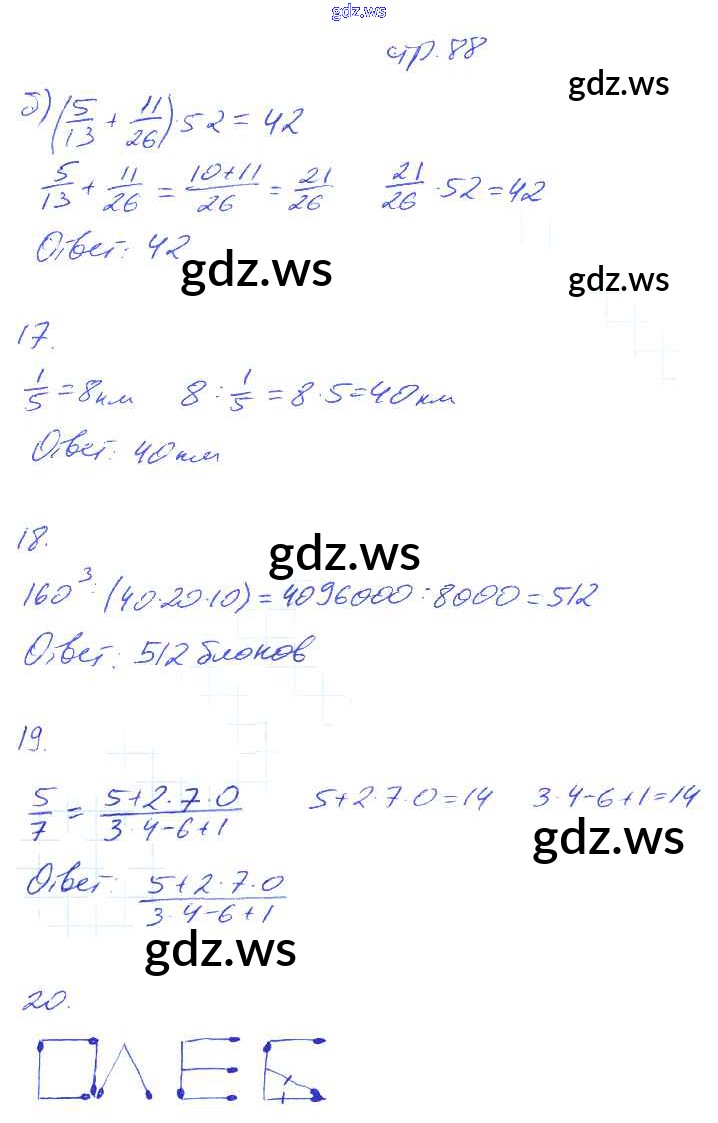 gdz.ws
стр. 88
gdz.ws
б) (5/13 + 11/26) · 52 = 42
5/13 + 11/26 = 10+11/26 = 21/26 21/26 · 52 = 42
Ответ: 42
gdz.ws
gdz.ws
17.
1/5 = 8км 8 : 1/5 = 8 · 5 = 40км
Ответ: 40км
18.
gdz.ws
160³ : (40·20·10) = 4096000 : 8000 = 512
Ответ: 512 блоков
19.
5/7 = 5+2·7·0/3·4-6+1 5+2·7·0=14 3·4-6+1=14
gdz.ws
Ответ: 5+2·7·0/3·4-6+1
gdz.ws
20.
ОЛЕБ